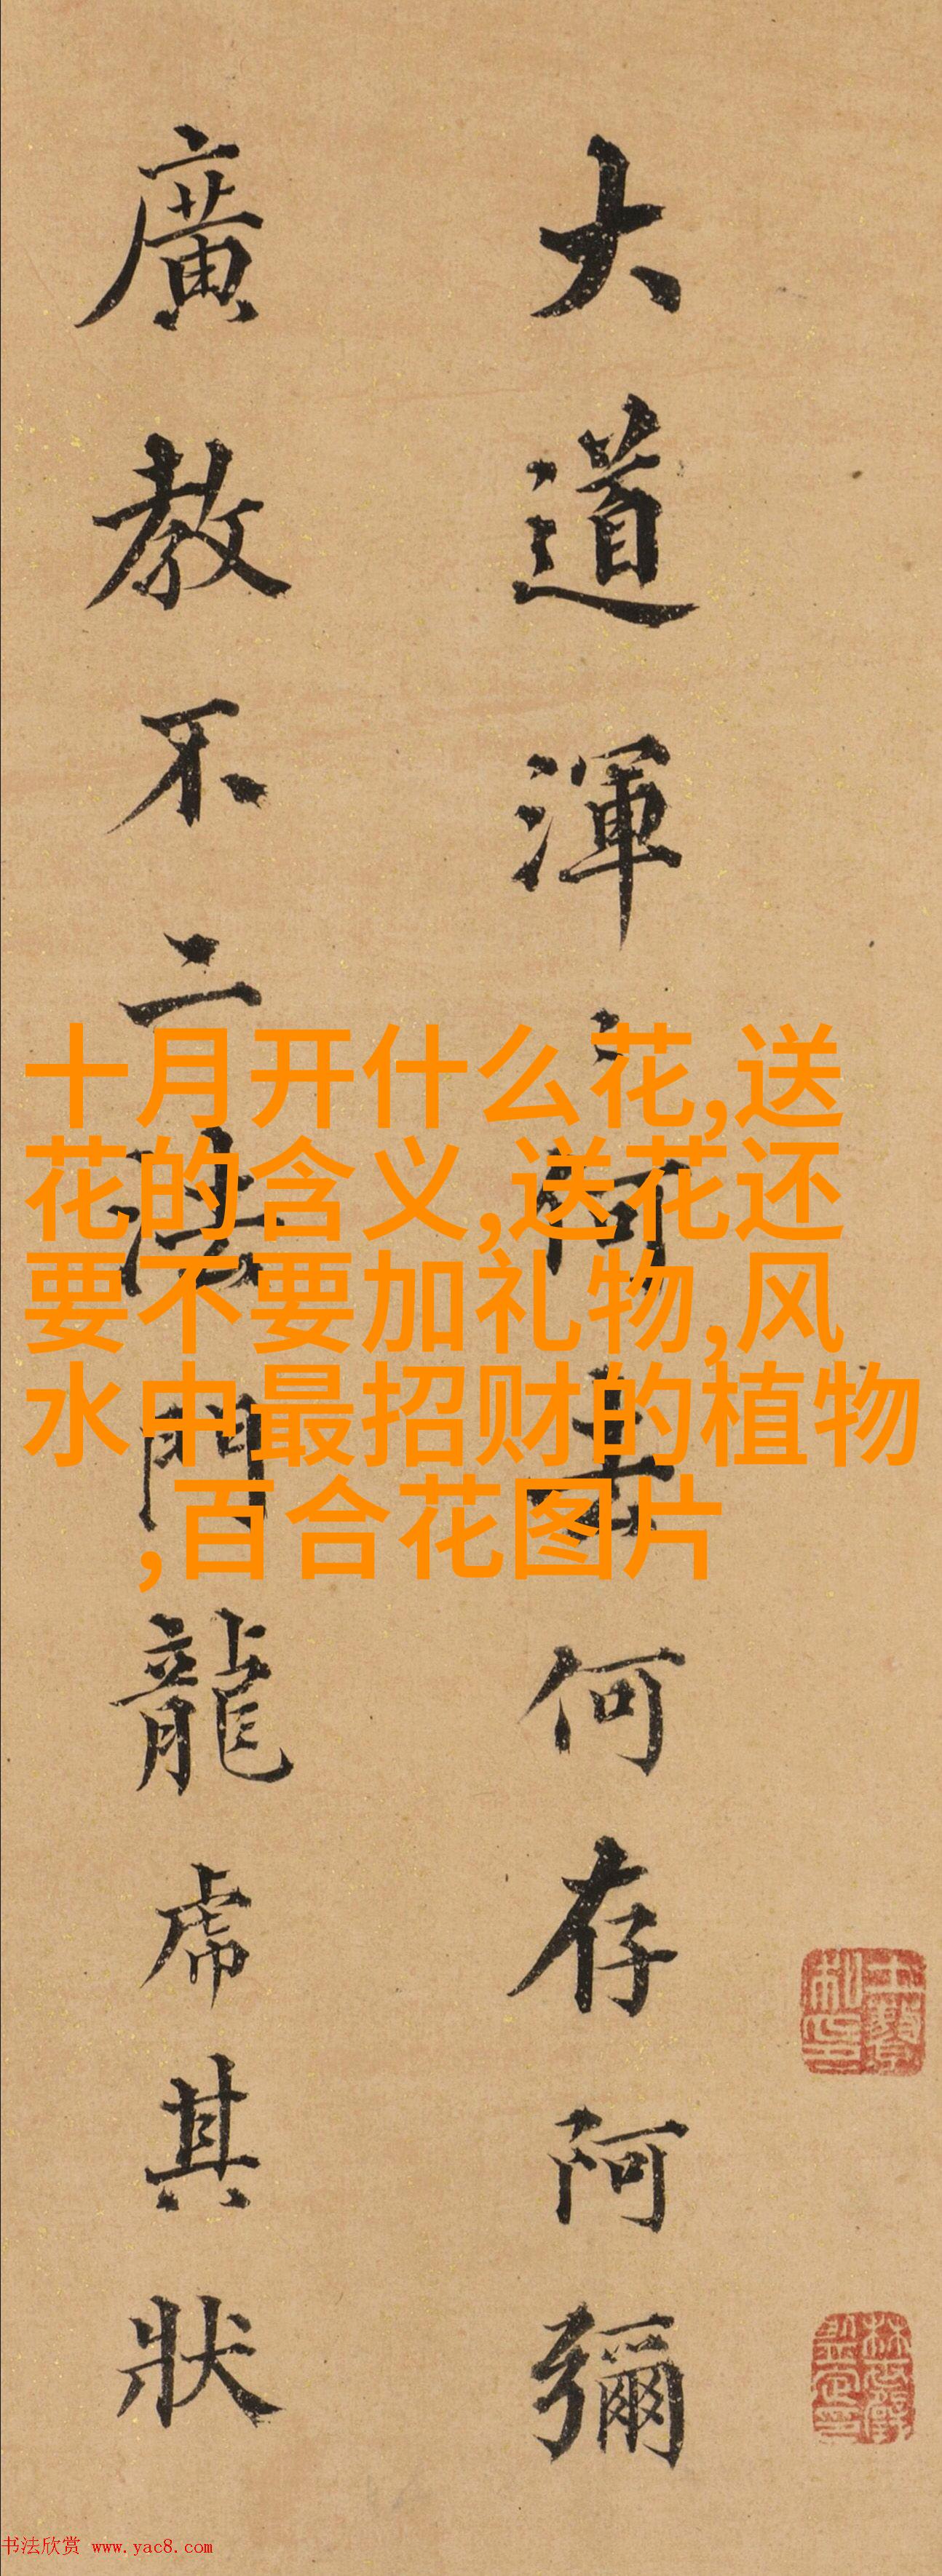 大道渾〻何去何存阿彌
廣教不二法門龍虎其狀
十月开什么花,送
花的含义,送花还
要不要加礼物,风
水中最招财的植物
,百合花图片
书法欣赏 www.yac8.com